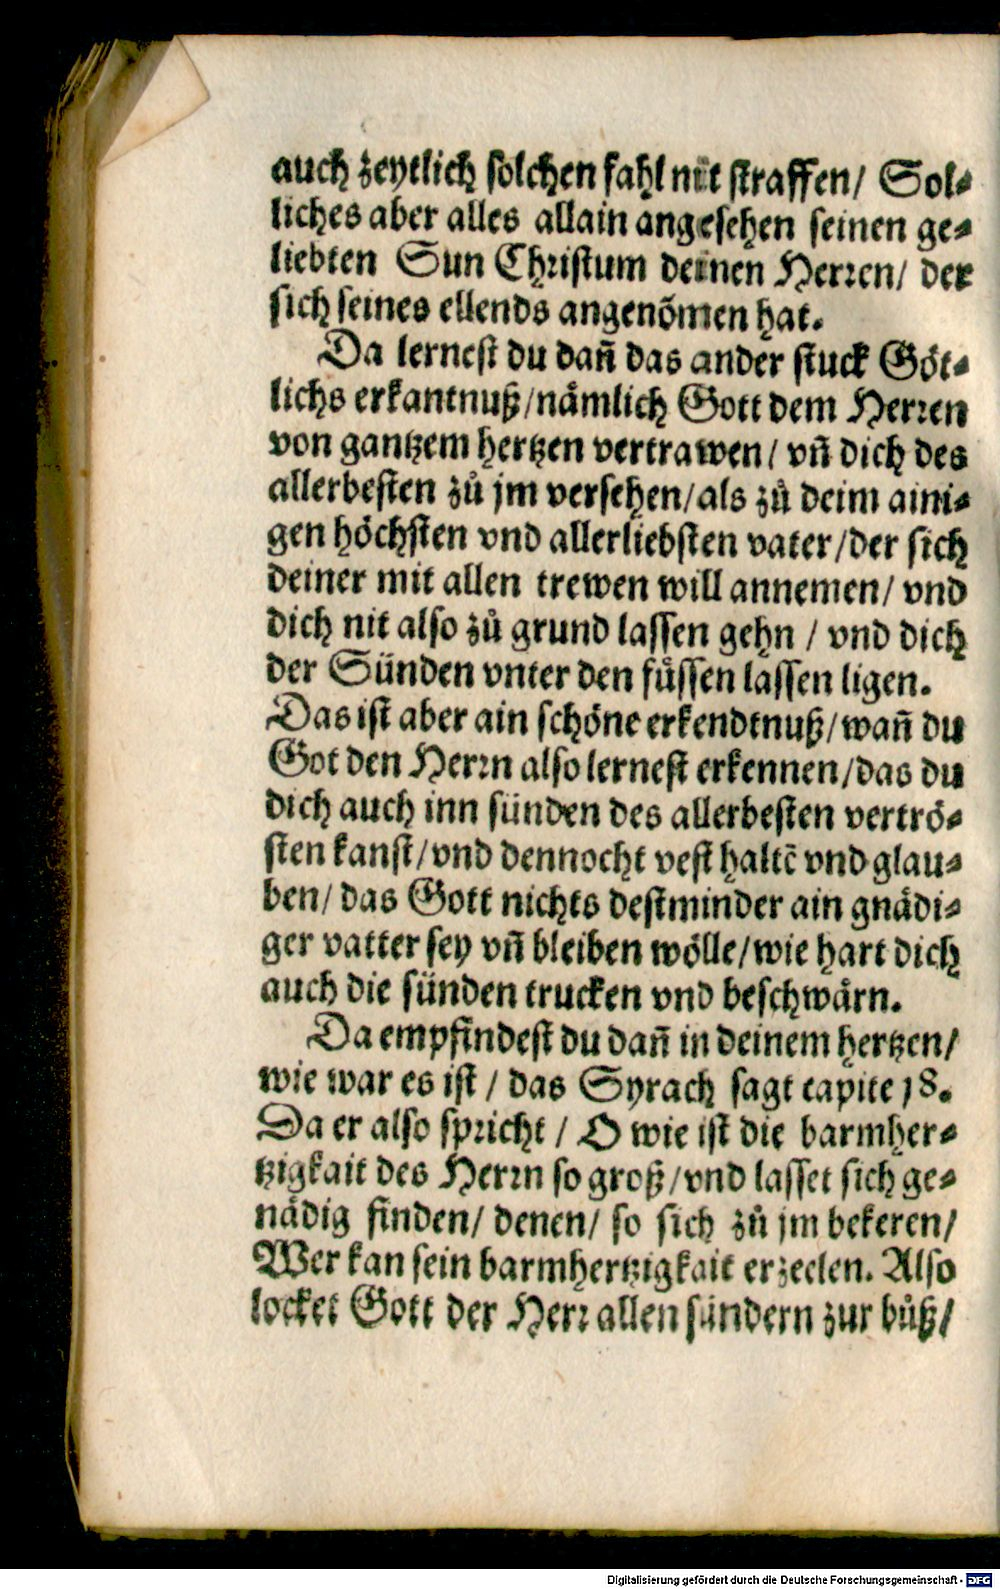 auch zeytlich solchen fahl nit straffen/ Sol⸗
liches aber alles allain angesehen seinen ge⸗
liebten Sun Christum deinen Herren/ der
sich seines ellends angenõmen hat.
Da lernest du dañ das ander stuck Göt⸗
lichs erkantnuß/nämlich Gott dem Herren
von gantzem hertzen vertrawen/ vñ dich des
allerbesten zů jm versehen/als zů deim aini⸗
gen höchsten vnd allerliebsten vater/der sich
deiner mit allen trewen will annemen/ vnd
dich nit also zů grund lassen gehn / vnd dich
der Sünden vnter den füssen lassen ligen.
Das ist aber ain schöne erkendtnuß/wañ du
Got den Herrn also lernest erkennen/das du
dich auch inn sünden des allerbesten vertrö⸗
sten kanst/vnd dennocht vest haltẽ vnd glau⸗
ben/ das Gott nichts destminder ain gnädi⸗
ger vatter sey vñ bleiben wölle/wie hart dich
auch die sünden trucken vnd beschwärn.
Da empfindest du dañ in deinem hertzen/
wie war es ist / das Syrach sagt capite 18.
Da er also spricht / O wie ist die barmher⸗
tzigkait des Herrn so groß/vnd lasset sich ge⸗
nädig finden/ denen/ so sich zů jm bekeren/
Wer kan sein barmhertzigkait erzeelen. Also
locket Gott der Herr allen sündern zur bůß/
Digitalisierung gefördert durch die Deutsche Forschungsgemeinschaft - DFG